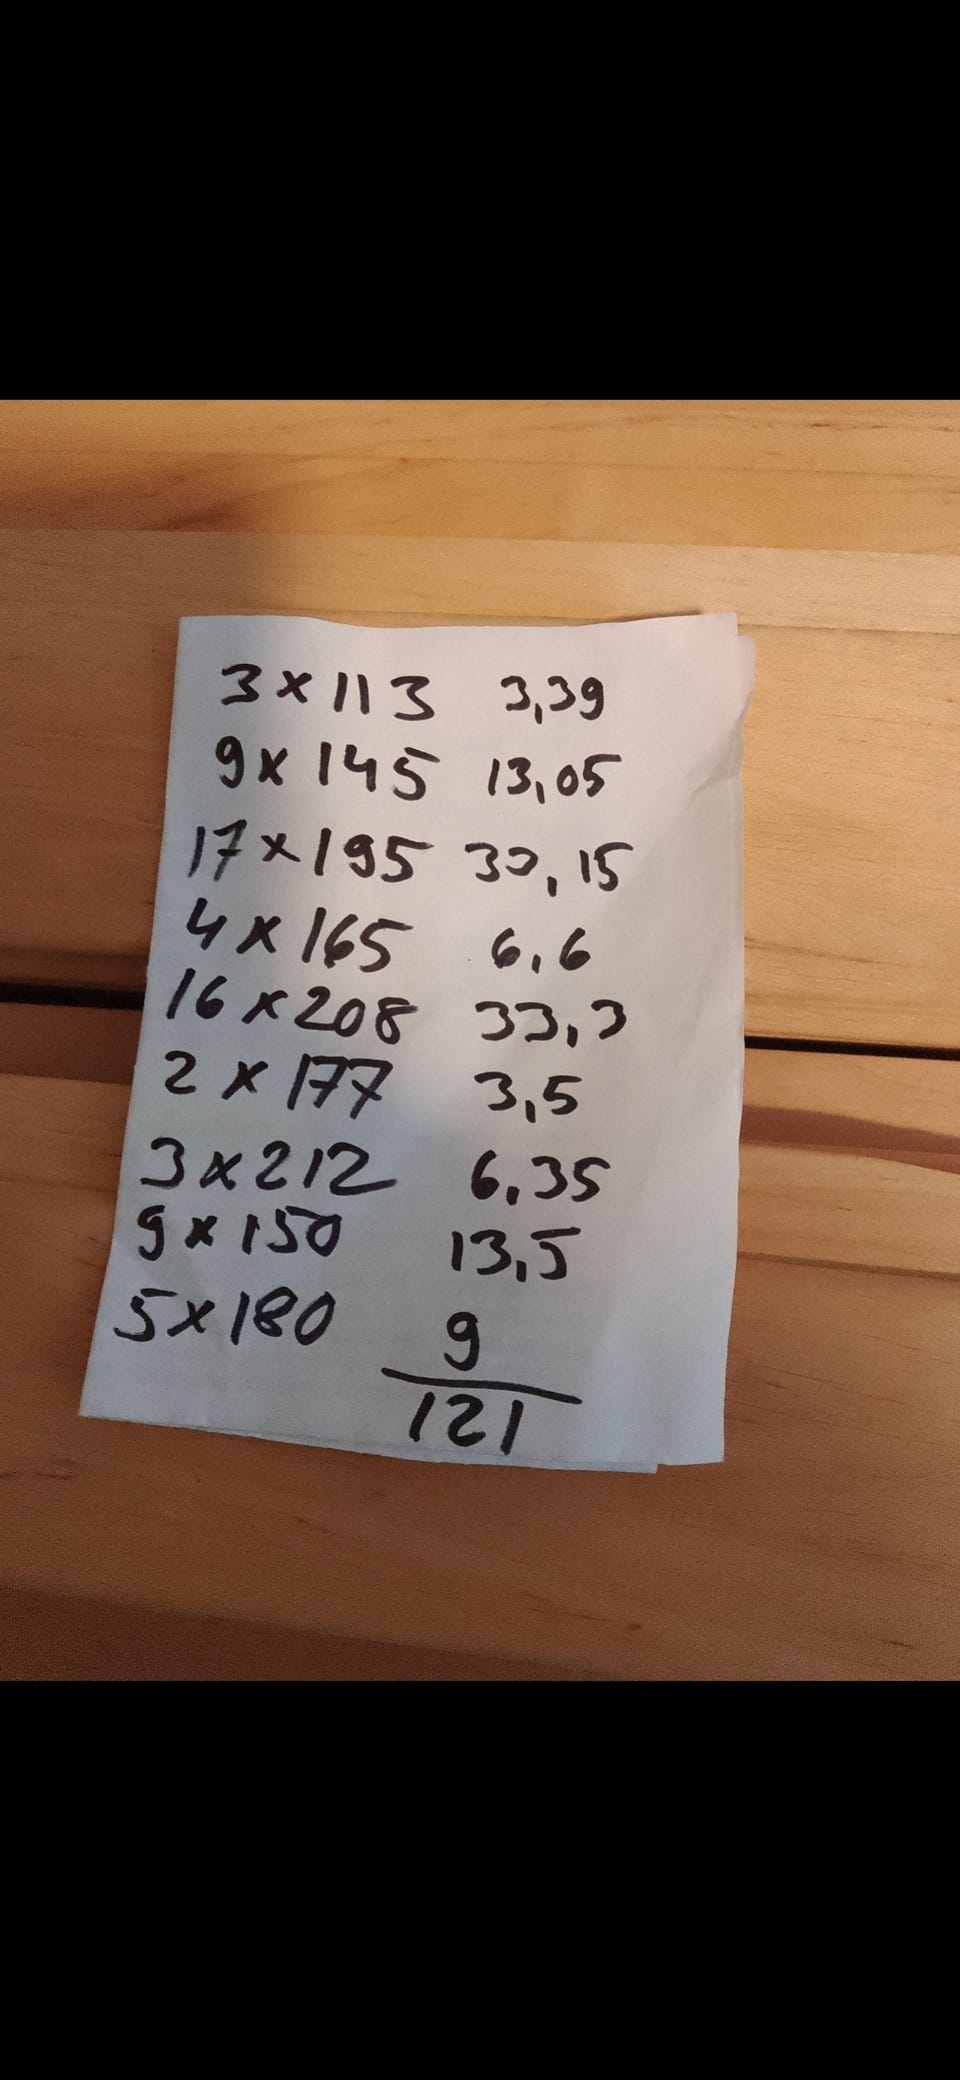 3 x 113 3,39
9 x 145 13,05
17 x 195 33,15
4 x 165 6,6
16 x 208 33,3
2 x 177 3,5
3 x 212 6,35
9 x 150 13,5
5 x 180 9
121